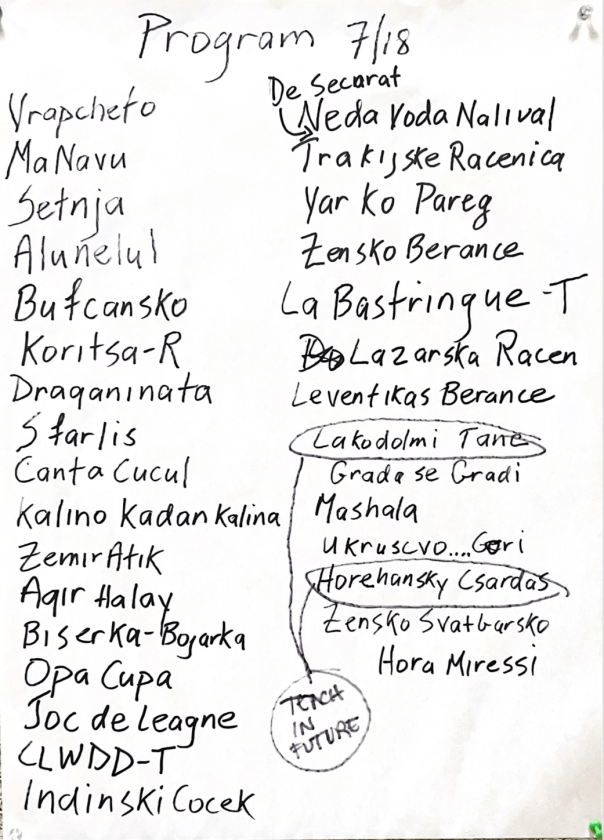 Program 7/18
Vrapcheto
Ma Navu
Setnja
Alunelul
Bufcansko
Koritsa-R
Draganinata
Starlis
Canta Cucul
Kalino Kadan Kalina
Zemir Atik
Agir Halay
Biserka-Bojarka
Opa Cupa
Joc de leagne
CLWDD-T
Indinski Cocek
De Secarat
Neda Voda Nalival
Trakijske Racenica
Yar Ko Pareg
Zensko Berance
La Bastringue -T
Lazarska Racen
Leventikas Berance
Lakodolmi Tane
Grada se Gradi
Mashala
Ukruscvo....Gori
Horehansky Csardas
Zensko Svatbarsko
Hora Miressi
TEACH
IN
FUTURE